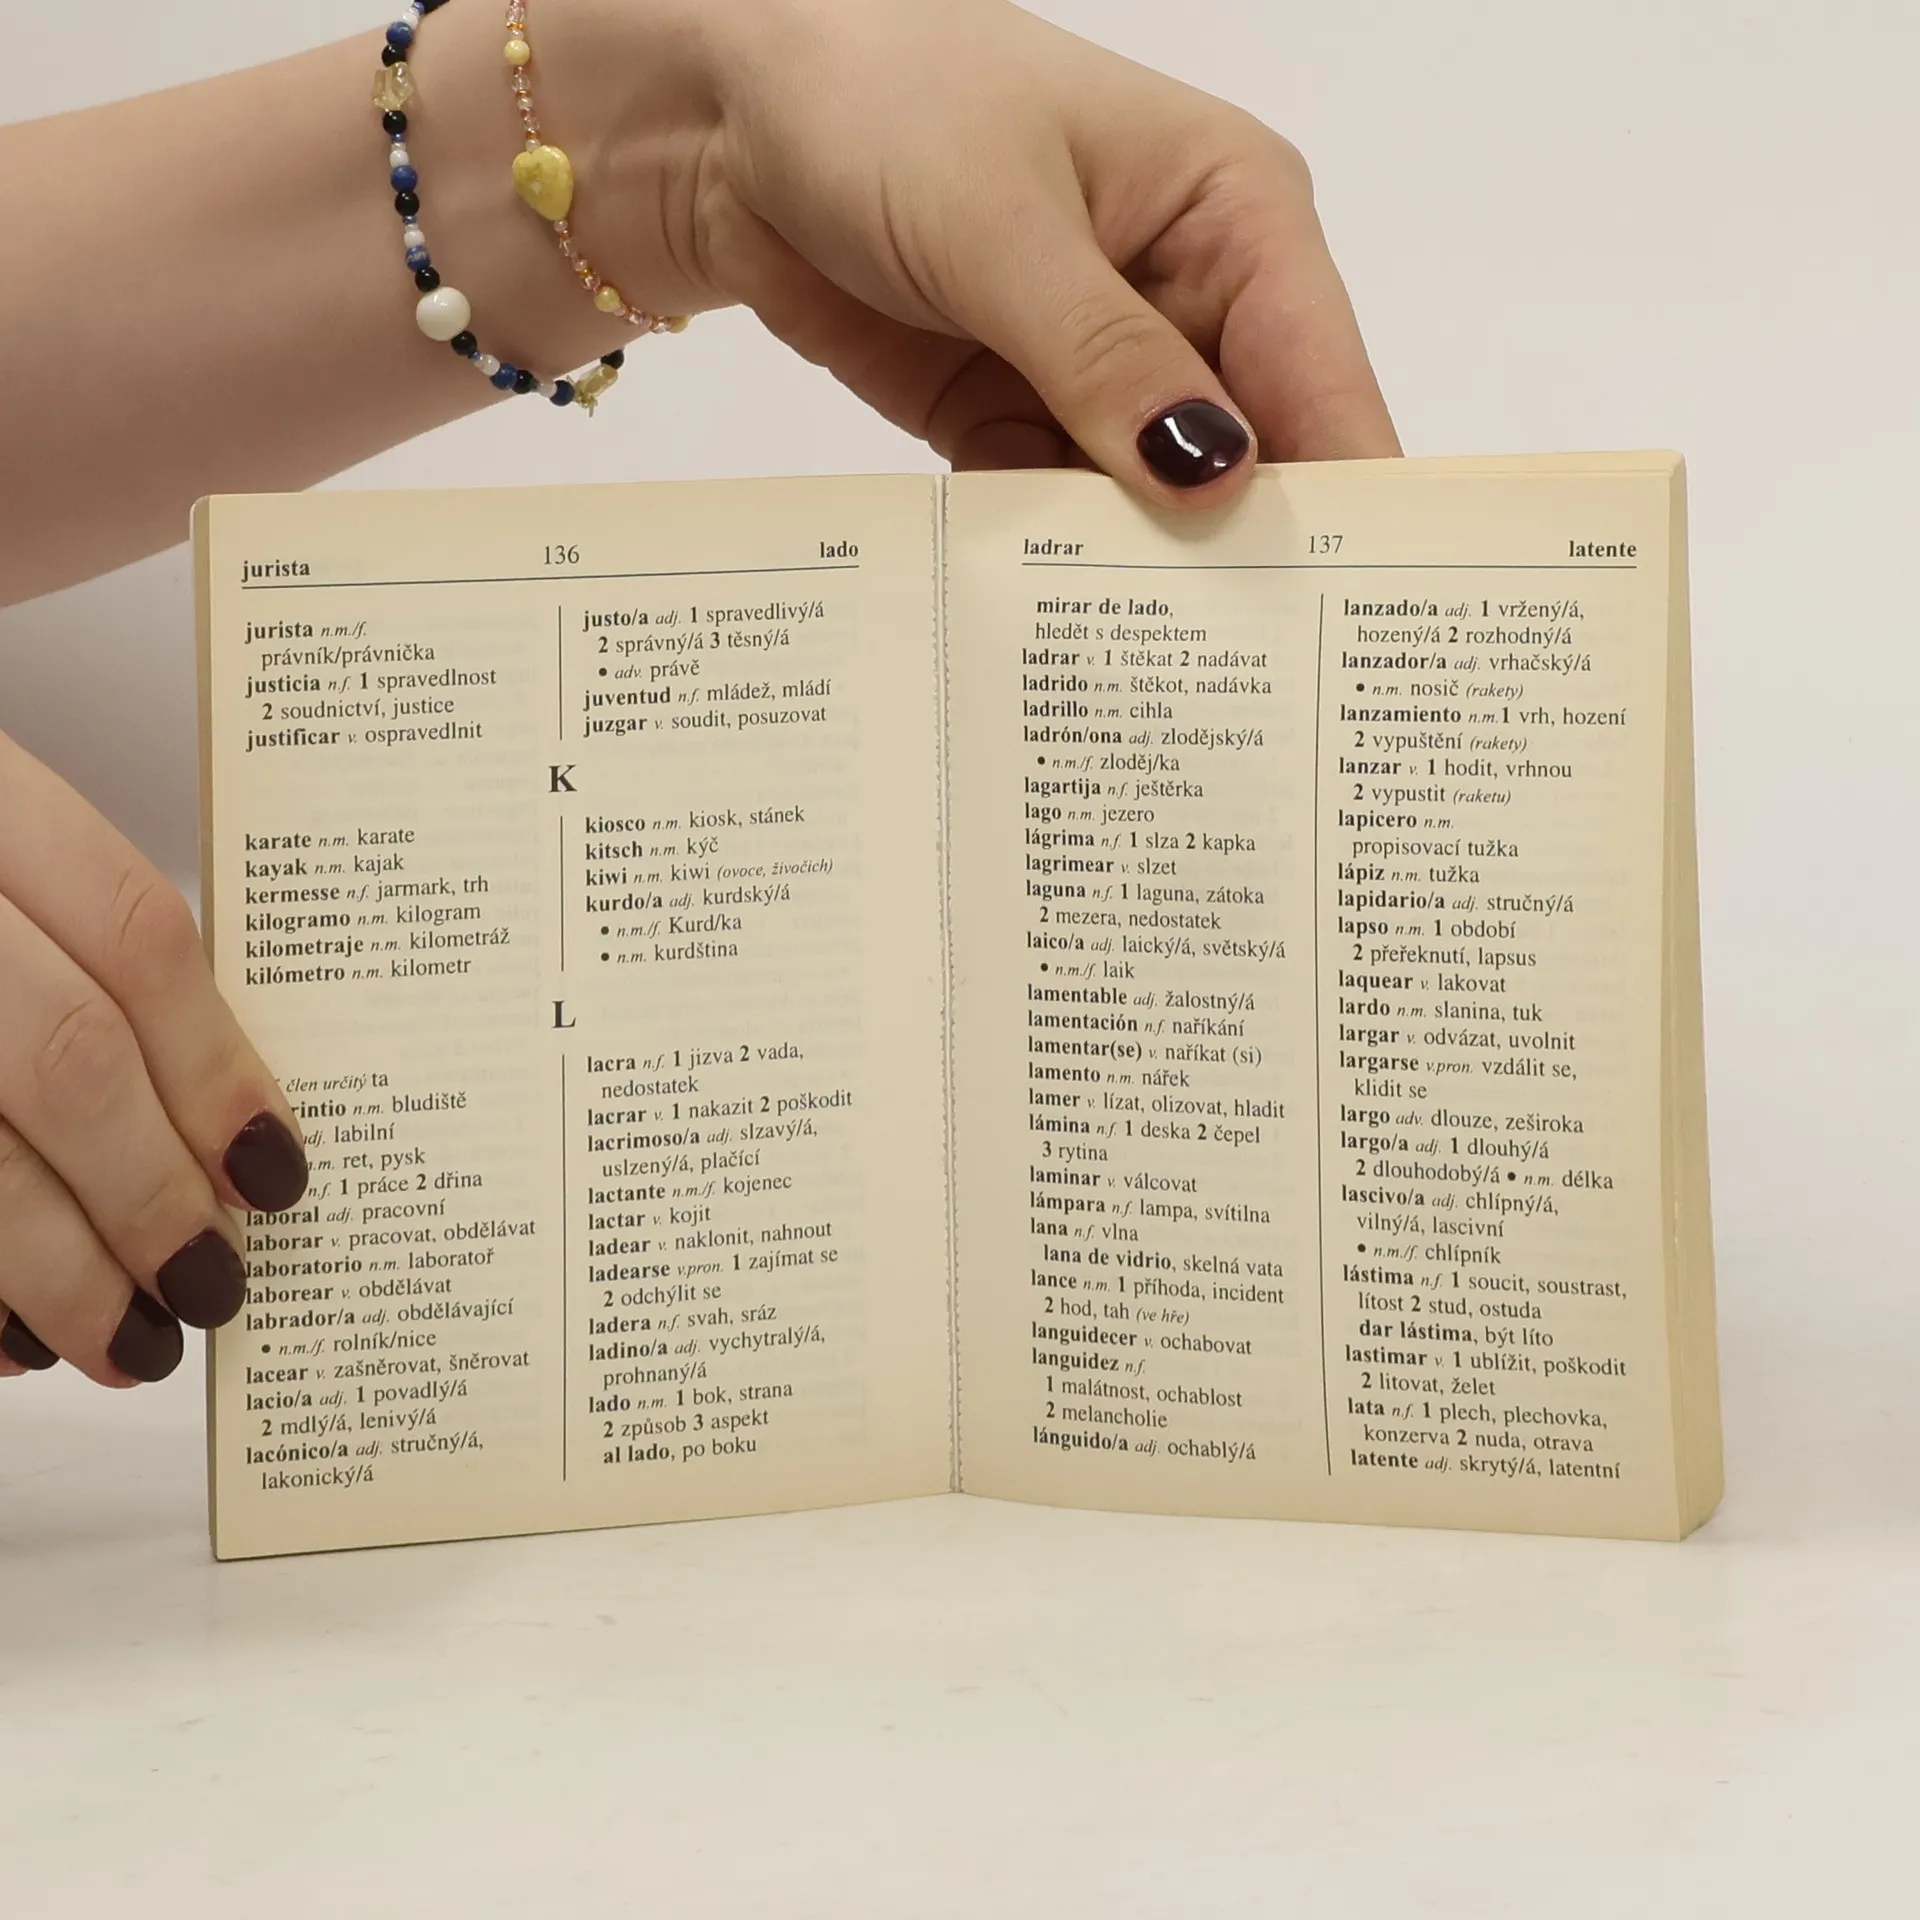 jurista 136 lado
jurista n.m./f.
právník/právnička
justicia n.f. 1 spravedlnost
2 soudnictví, justice
justificar v. ospravedlnit
justo/a adj. 1 spravedlivý/á
2 správný/á 3 těsný/á
• adv. právě
juventud n.f. mládež, mládí
juzgar v. soudit, posuzovat
K
karate n.m. karate
kayak n.m. kajak
kermesse n.f. jarmark, trh
kilogramo n.m. kilogram
kilometraje n.m. kilometráž
kilómetro n.m. kilometr
kiosco n.m. kiosk, stánek
kitsch n.m. kýč
kiwi n.m. kiwi (ovoce, živočich)
kurdo/a adj. kurdský/á
• n.m./f. Kurd/ka
• n.m. kurdština
L
člen určitý ta
n.m. bludiště
labilní
ret, pysk
n.f. 1 práce 2 dřina
laboral adj. pracovní
laborar v. pracovat, obdělávat
laboratorio n.m. laboratoř
laborear v. obdělávat
labrador/a adj. obdělávající
• n.m./f. rolník/nice
lacear v. zašněrovat, šněrovat
lacio/a adj. 1 povadlý/á
2 mdlý/á, lenivý/á
lacónico/a adj. stručný/á,
lakonický/á
lacra n.f. 1 jizva 2 vada,
nedostatek
lacrar v. 1 nakazit 2 poškodit
lacrimoso/a adj. slzavý/á,
uslzený/á, plačící
lactante n.m./f. kojenec
lactar v. kojit
ladear v. naklonit, nahnout
ladearse v.pron. 1 zajímat se
2 odchýlit se
ladera n.f. svah, sráz
ladino/a adj. vychytralý/á,
prohnaný/á
lado n.m. 1 bok, strana
2 způsob 3 aspekt
al lado, po boku
ladrar 137 latente
mirar de lado,
hledět s despektem
ladrar v. 1 štěkat 2 nadávat
ladrido n.m. štěkot, nadávka
ladrillo n.m. cihla
ladrón/ona adj. zlodějský/á
• n.m./f. zloděj/ka
lagartija n.f. ještěrka
lago n.m. jezero
lágrima n.f. 1 slza 2 kapka
lagrimear v. slzet
laguna n.f. 1 laguna, zátoka
2 mezera, nedostatek
laico/a adj. laický/á, světský/á
• n.m./f. laik
lamentable adj. žalostný/á
lamentación n.f. naříkání
lamentar(se) v. naříkat (si)
lamento n.m. nářek
lamer v. lízat, olizovat, hladit
lámina n.f. 1 deska 2 čepel
3 rytina
laminar v. válcovat
lámpara n.f. lampa, svítilna
lana n.f. vlna
lana de vidrio, skelná vata
lance n.m. 1 příhoda, incident
2 hod, tah (ve hře)
languidecer v. ochabovat
languidez n.f.
1 malátnost, ochablost
2 melancholie
lánguido/a adj. ochablý/á
lanzado/a adj. 1 vržený/á,
hozený/á 2 rozhodný/á
lanzador/a adj. vrhačský/á
• n.m. nosič (rakety)
lanzamiento n.m.1 vrh, hození
2 vypuštění (rakety)
lanzar v. 1 hodit, vrhnou
2 vypustit (raketu)
lapicero n.m.
propisovací tužka
lápiz n.m. tužka
lapidario/a adj. stručný/á
lapso n.m. 1 období
2 přeřeknutí, lapsus
laquear v. lakovat
lardo n.m. slanina, tuk
largar v. odvázat, uvolnit
largarse v.pron. vzdálit se,
klidit se
largo adv. dlouze, zeširoka
largo/a adj. 1 dlouhý/á
2 dlouhodobý/á • n.m. délka
lascivo/a adj. chlípný/á,
vilný/á, lascivní
• n.m./f. chlípník
lástima n.f. 1 soucit, soustrast,
lítost 2 stud, ostuda
dar lástima, být líto
lastimar v. 1 ublížit, poškodit
2 litovat, želet
lata n.f. 1 plech, plechovka,
konzerva 2 nuda, otrava
latente adj. skrytý/á, latentní